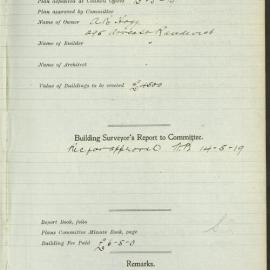 Plan deposited at Council Office
Plan approved by Committee
Name of Owner
Name of Builder "
Name of Architect "
Value of Buildings to be erected £4500
Building Surveyor's Report to Committee.
Rec for approval 14-5-19
Report Book, folio
Plans Committee Minute Book, page
Building Fee Paid £6-5-0
Remarks.